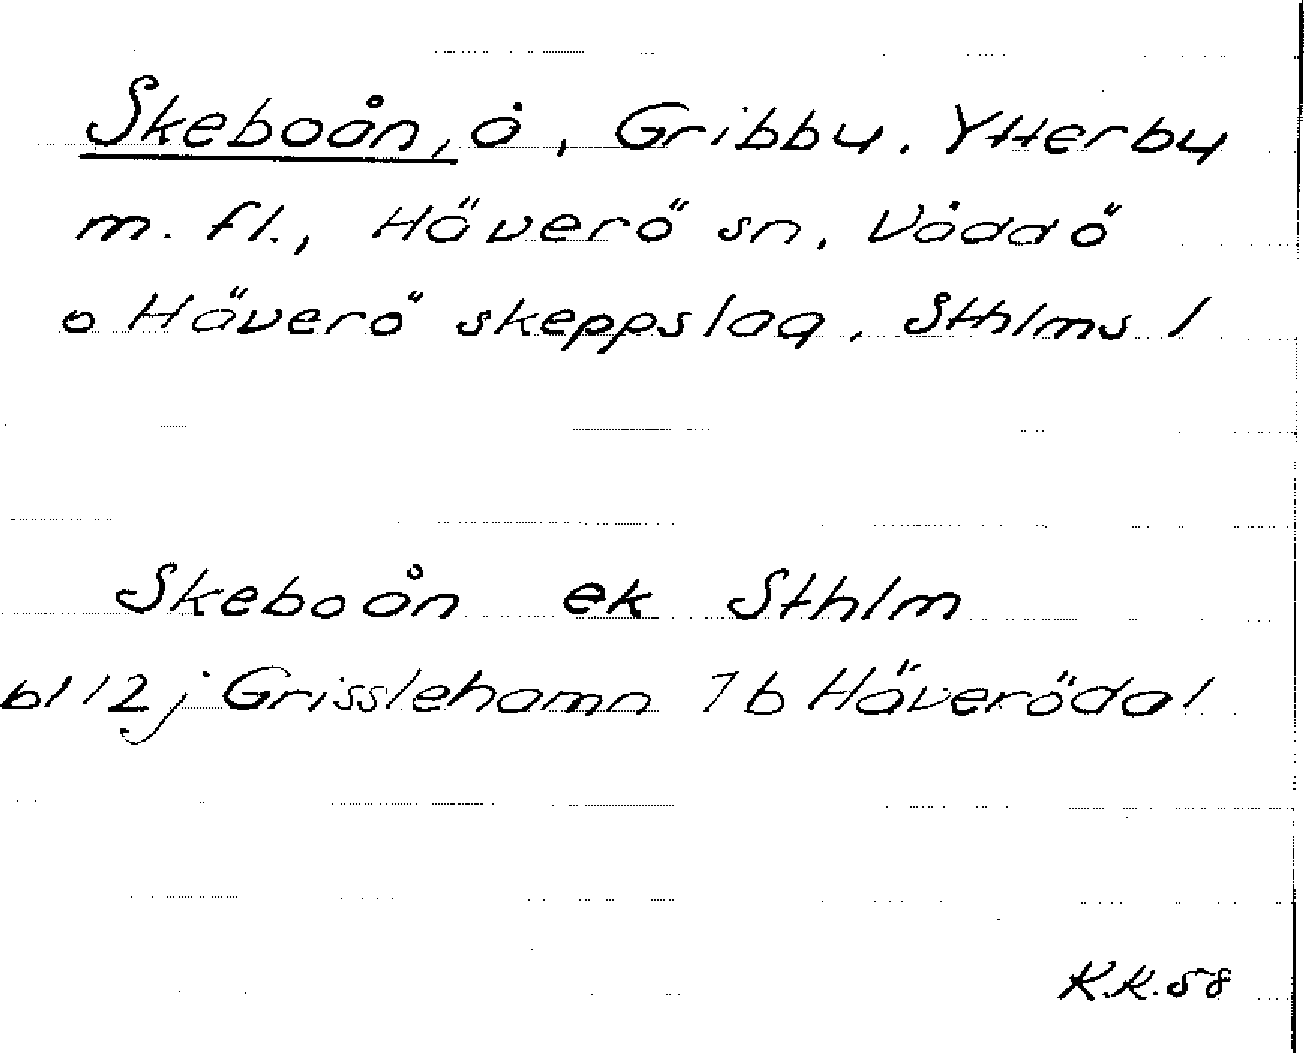 Skeboån, å, Gribby, Ytterby
m. fl., Häverö sn, Väddö
o Häverö skeppslag, Sthlms l
Skeboån ek Sthlm
bl 12j Grisslehamn 7b Häverödal
K.K. 58